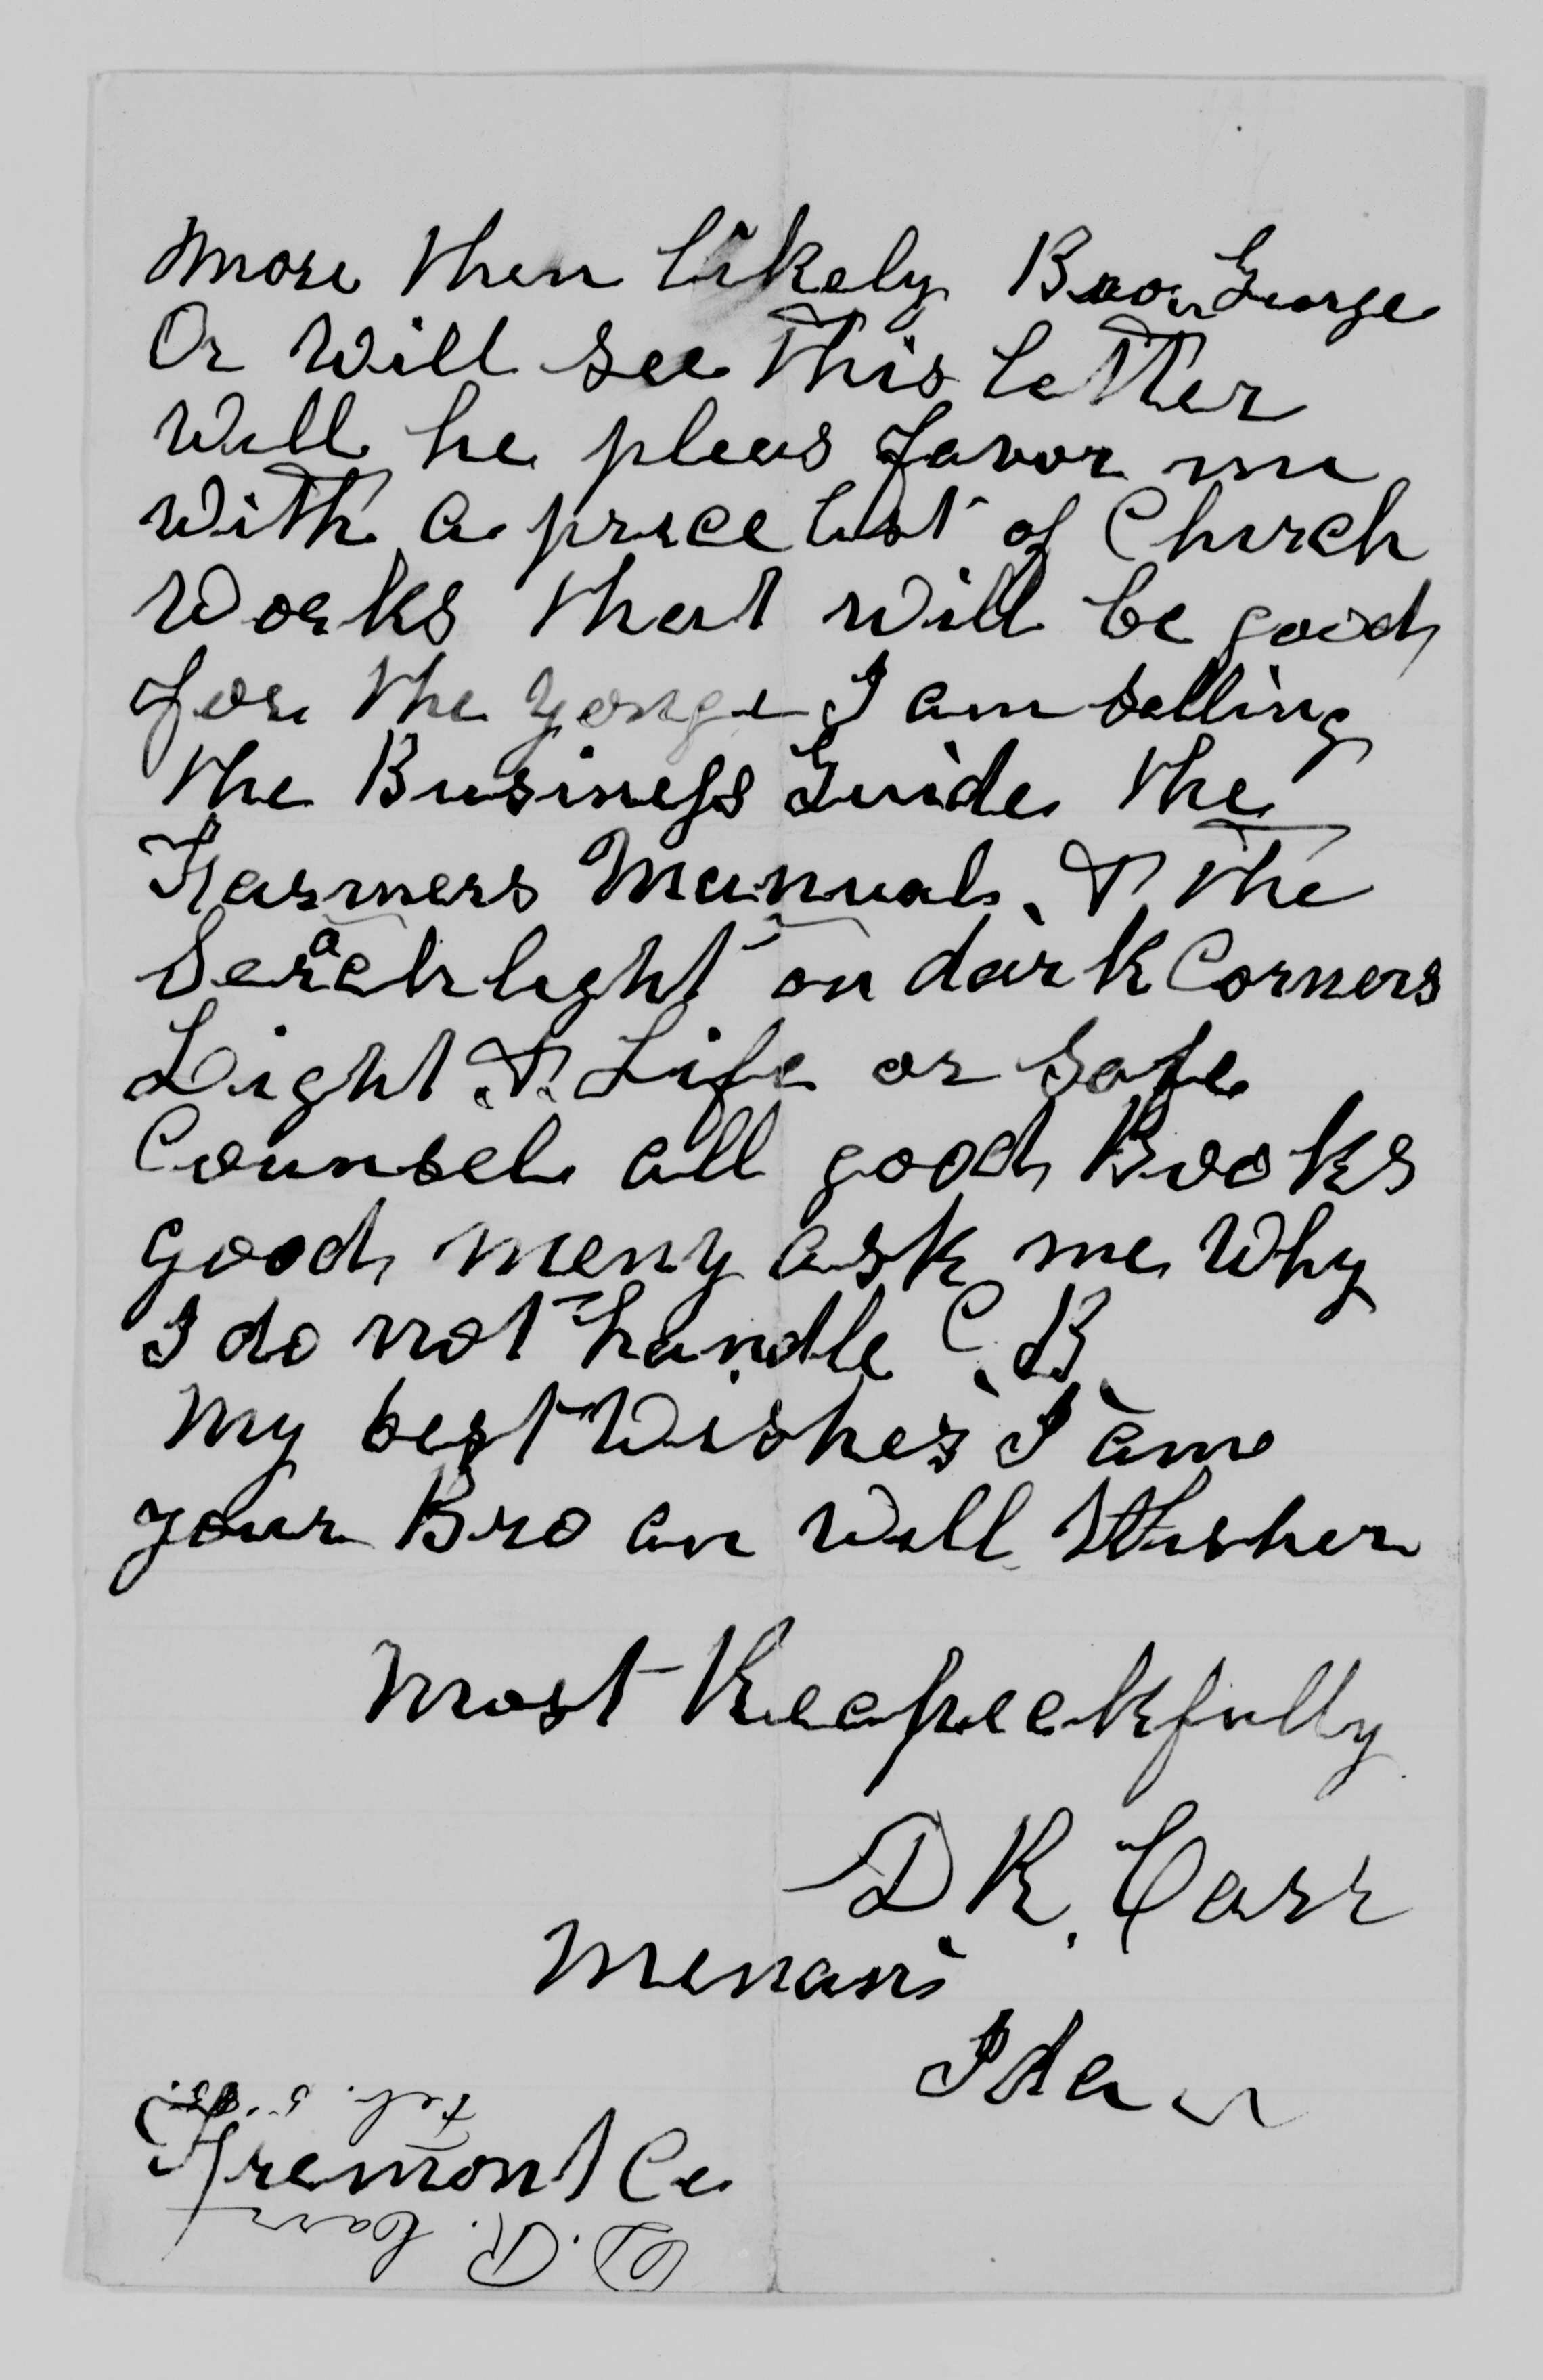 more then likely Bro George
Or will see this letter
Will he pleas favor me
With a price list of Church
Works that will be good
for the yonge I am selling
the Business Guide the
Farmers Manual & the
Serachlight on dark Corners
Light & Life or Safe
Counsel all good Books
good meny ask me Why
I do not handle C. B.
My best Wishes I am
your Bro an Well Wisher
Most Recpeckfully
D R. Carr
Menan
Ida
Fremont Co
D. R. Carr
Feb. 5.